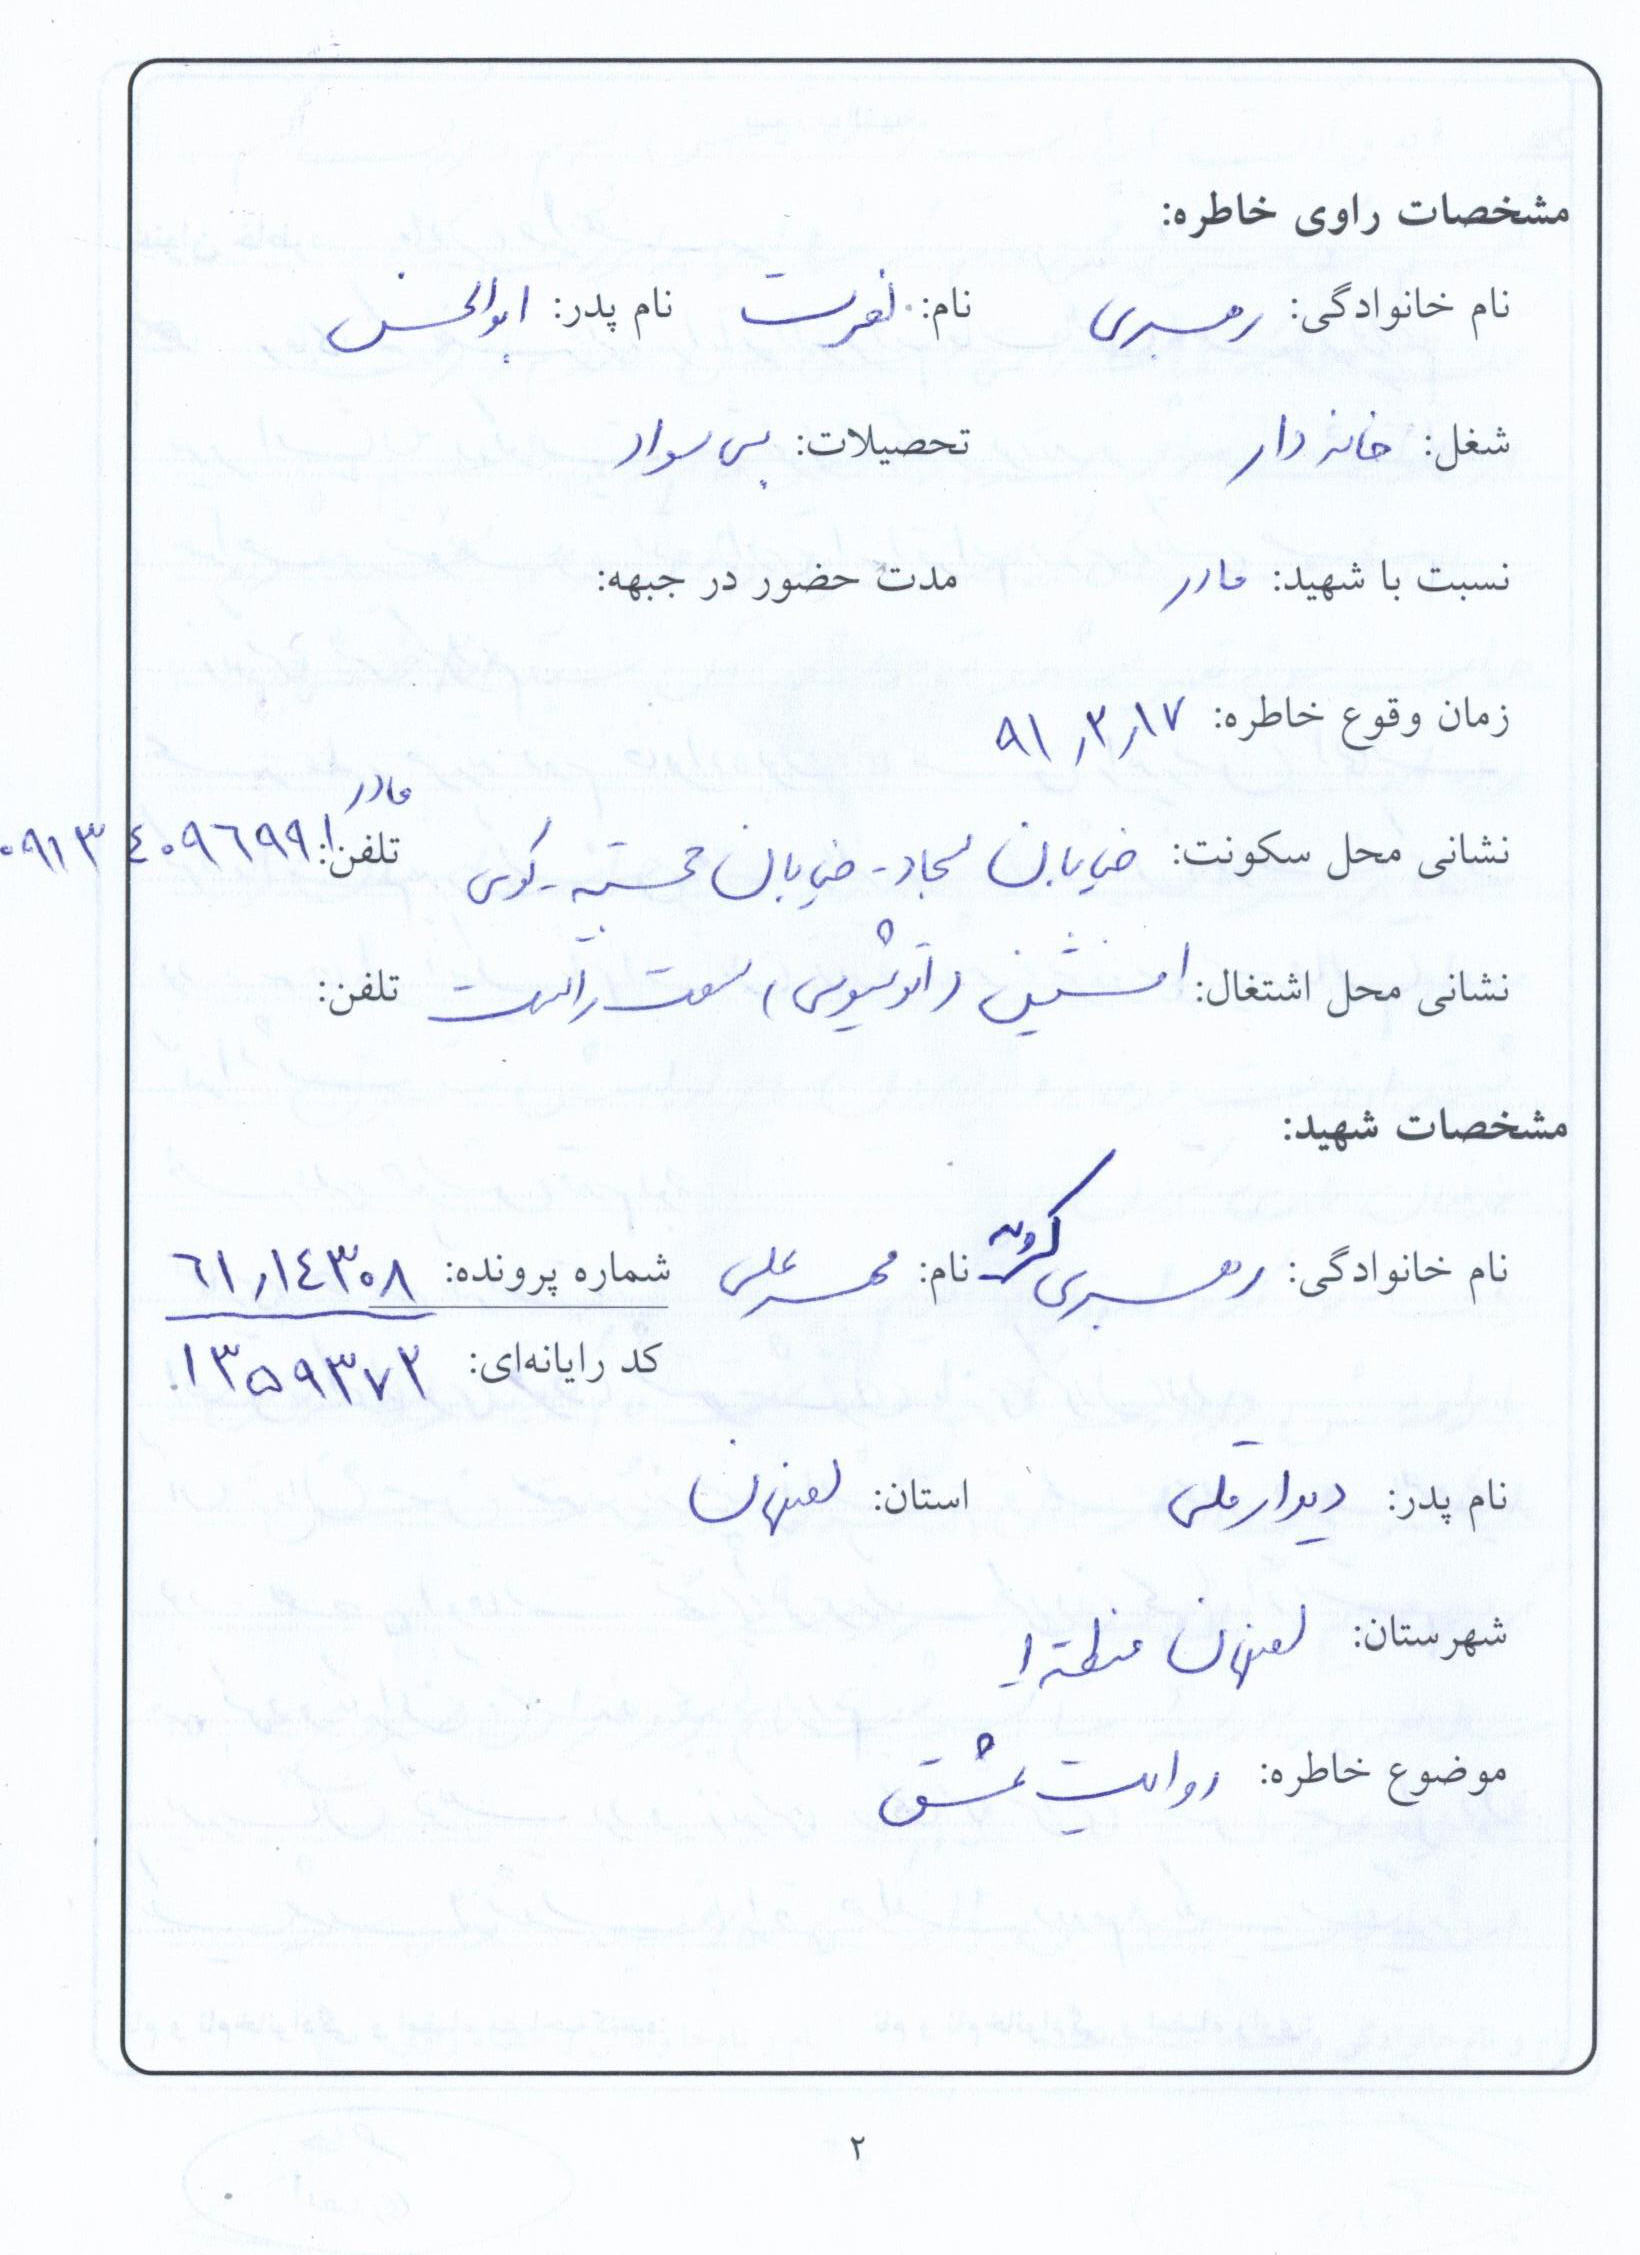 مشخصات راوی خاطره:
نام خانوادگی: رهبری نام: نصرت نام پدر: ابوالحسن
شغل: خانه دار تحصیلات: بی سواد
نسبت با شهید: مادر مدت حضور در جبهه:
زمان وقوع خاطره: ۹۱٫۳٫۱۷
مادر
نشانی محل سکونت: خیابان سجاد - خیابان خجسته - کوی تلفن: ۰۹۱۳۴۰۹۶۹۹۱
نشانی محل اشتغال: افشین (اتوشویی) سمت راست تلفن:
مشخصات شهید:
نام خانوادگی: رهبری نام: محمد علی شماره پرونده: ۶۱٫۱۴۳۰۸
کد رایانه‌ای: ۱۳۵۹۳۷۲
نام پدر: دیدارقلی استان: اصفهان
شهرستان: اصفهان منطقه ۱
موضوع خاطره: روایت عشق
۲